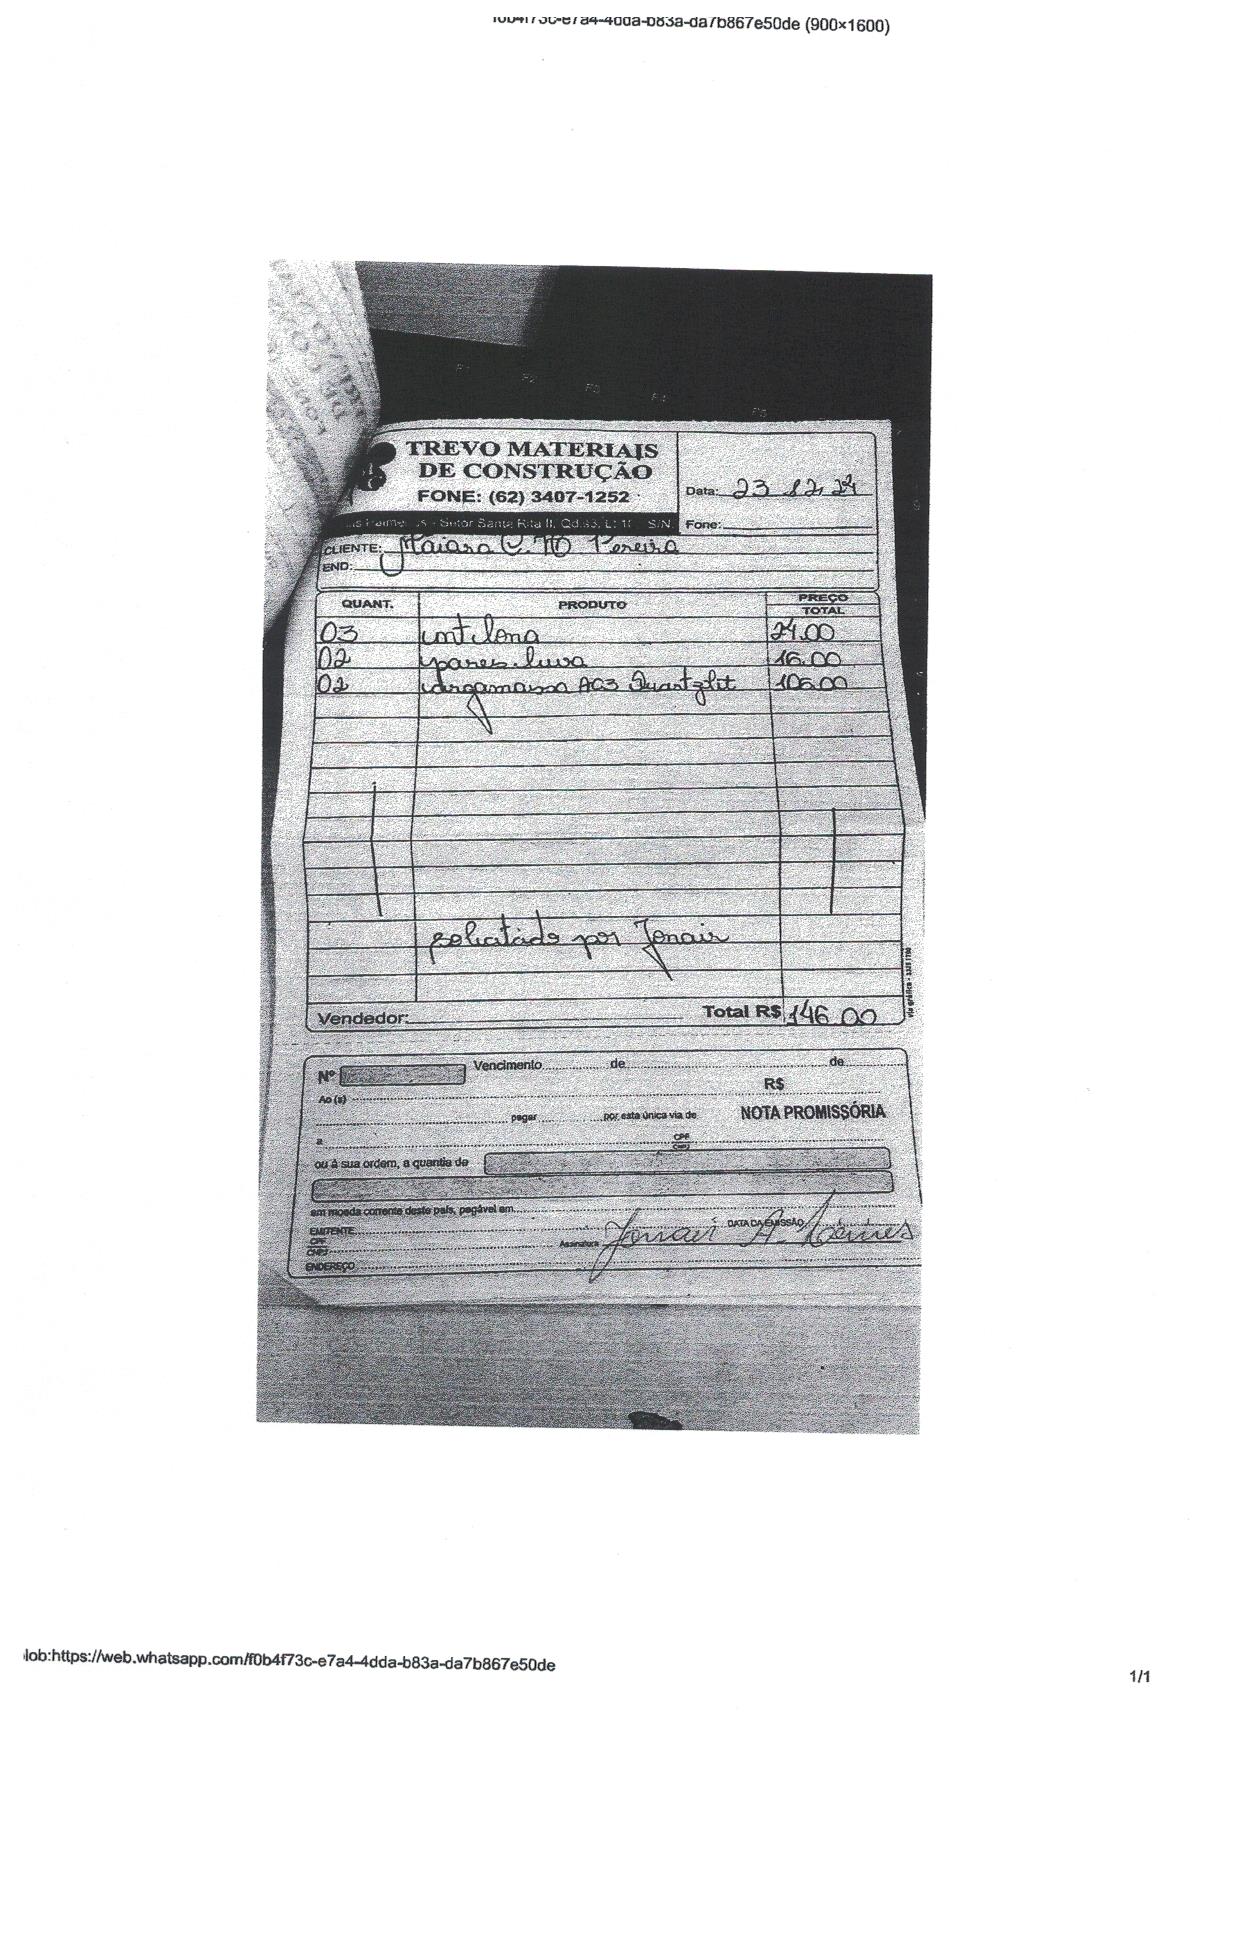 f0b4f73c-e7a4-4dda-b83a-da7b867e50de (900×1600)
F1 F2 F3 F4 F5
TREVO MATERIAIS
DE CONSTRUÇÃO
FONE: (62) 3407-1252
Setor Santa Rita II, Qd.33, Lt S/N
Data: 23
Fone:
CLIENTE: Maiara C. Pereira
END:
QUANT. PRODUTO PREÇO
TOTAL
03 mt lona 24.00
02 pares luva 16.00
02 argamassa AC3 Quartzlit 106.00
solicitado por Jonair
Vendedor: Total R$ 146.00
Nº Vencimento de de
R$
Ao (s)
pagar por esta única via de NOTA PROMISSÓRIA
a CPF
CNPJ
ou à sua ordem, a quantia de
em moeda corrente deste país, pagável em
EMITENTE DATA DA EMISSÃO
CPF
CNPJ Assinatura Jonair A.
ENDEREÇO
lob:https://web.whatsapp.com/f0b4f73c-e7a4-4dda-b83a-da7b867e50de
1/1